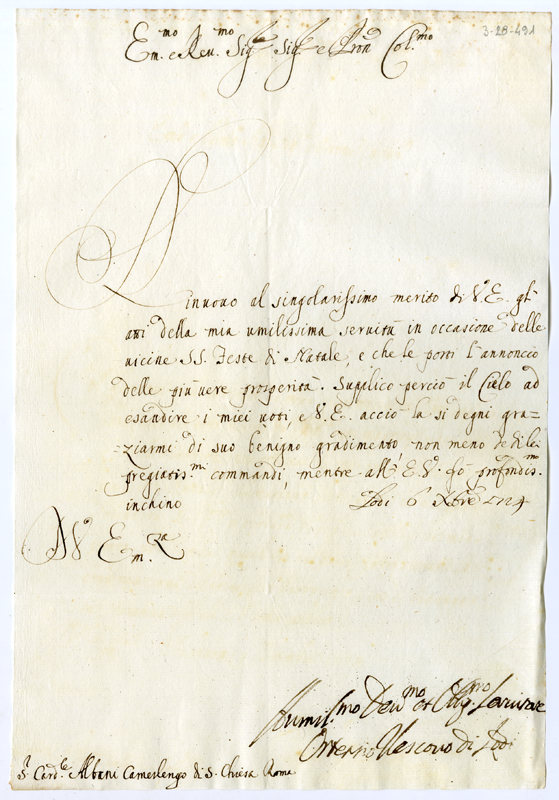 3-28-491
Em.mo e Reu.mo Sig.re Sig.re e Pron Col.mo
Rinuouo al singolarissimo merito di V.E. gl'
atti della mia umilissima seruitù in occasione delle
uicine SS. Feste di Natale, e che le porti l'annoncio
delle più uere prosperità. Supplico perciò il Cielo ad
esaudire i miei uoti, e V.E. acciò la si degni gra-
-ziarmi di suo benigno gradimento, non meno che de
pregiatis.mi commandi, mentre all' E.V. fò profondis.mo
inchino Lodi 6 Xbre 1724
D V.a Em.za
Humil.mo Deu.mo et Obg.mo Seruitore
Ortensio Vescouo di Lodi
S.r Card.le Albani Camerlengo di S. Chiesa Roma